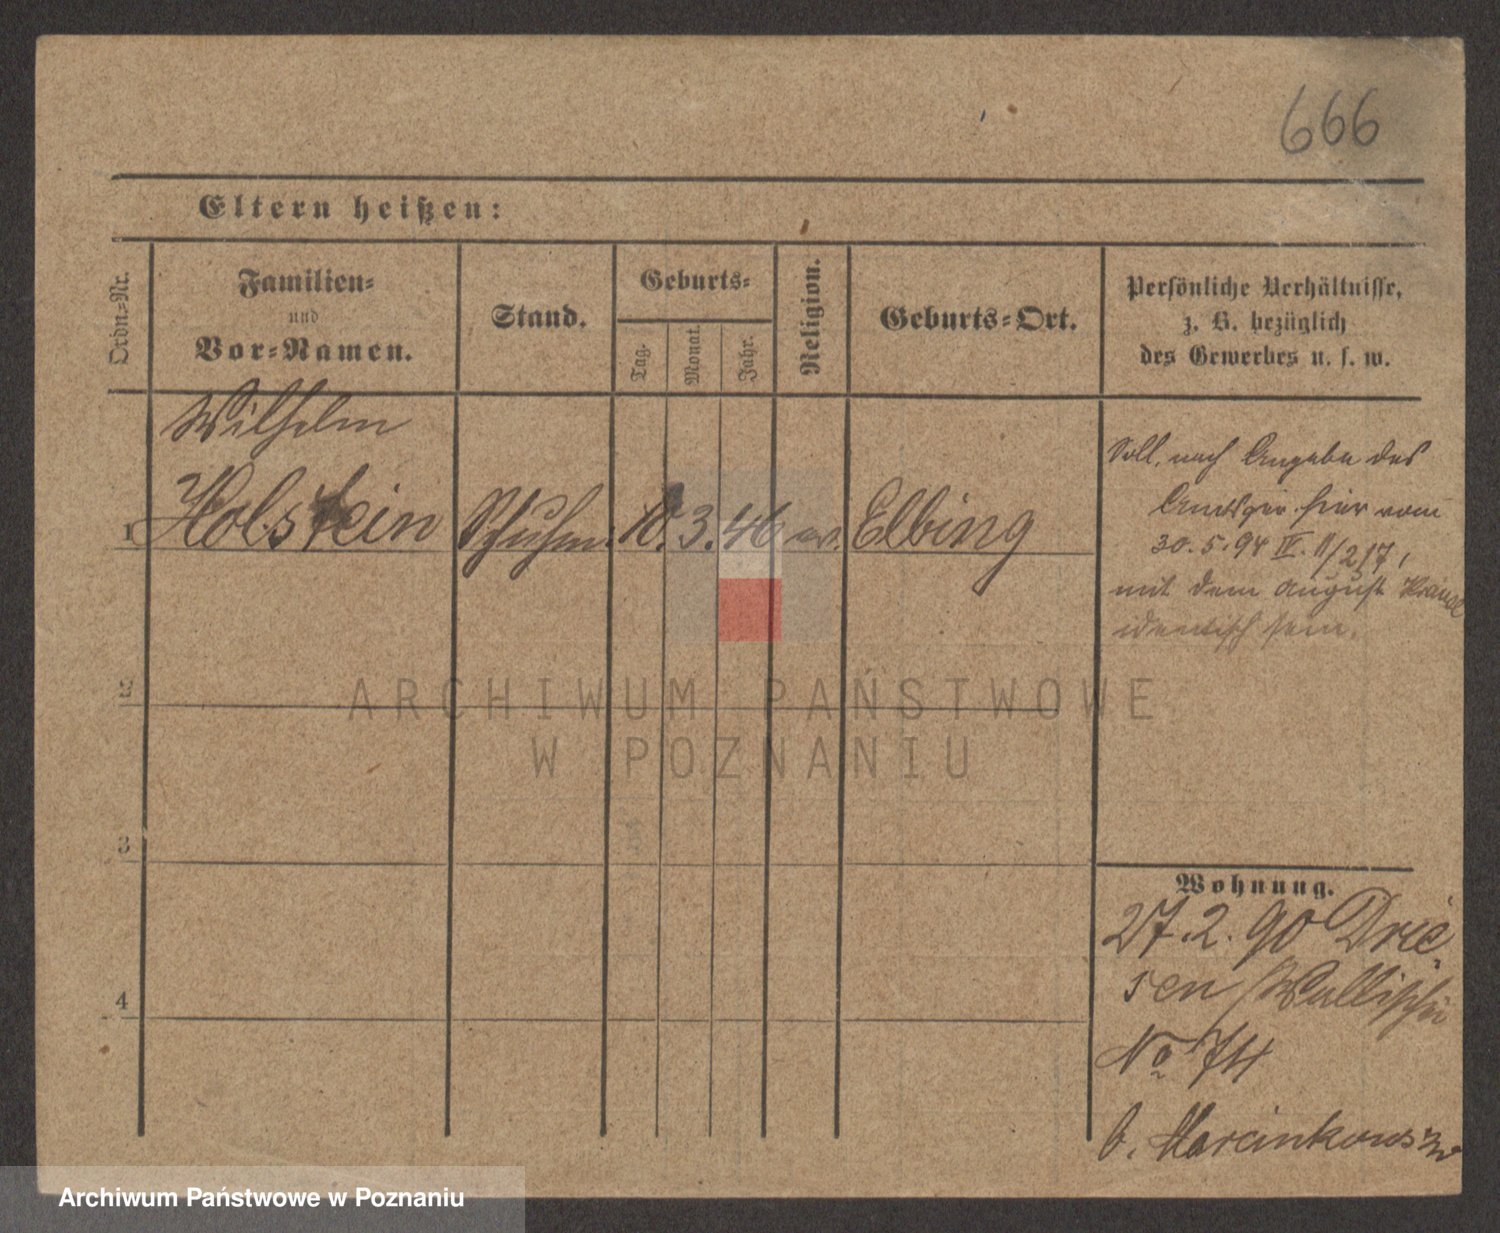 666
Eltern heißen:
Ordn.-Nr.
Familien-
und
Vor-Namen.
Stand.
Geburts-
Tag.
Monat.
Jahr.
Religion.
Geburts-Ort.
Persönliche Verhältnisse,
z. B. bezüglich
des Gewerbes u. s. w.
Wilhelm
1 Holstein Schuhm. 10. 3. 46 ev. Elbing
Soll, nach Angabe des
hier vom
30. 5. 94 IV. 11/217,
mit dem August
identisch sein.
2
3
4
ARCHIWUM PAŃSTWOWE
W POZNANIU
Wohnung.
27. 2. 90 Drie-
sen Wallischei
No 74
b. Marcinkowski
Archiwum Państwowe w Poznaniu